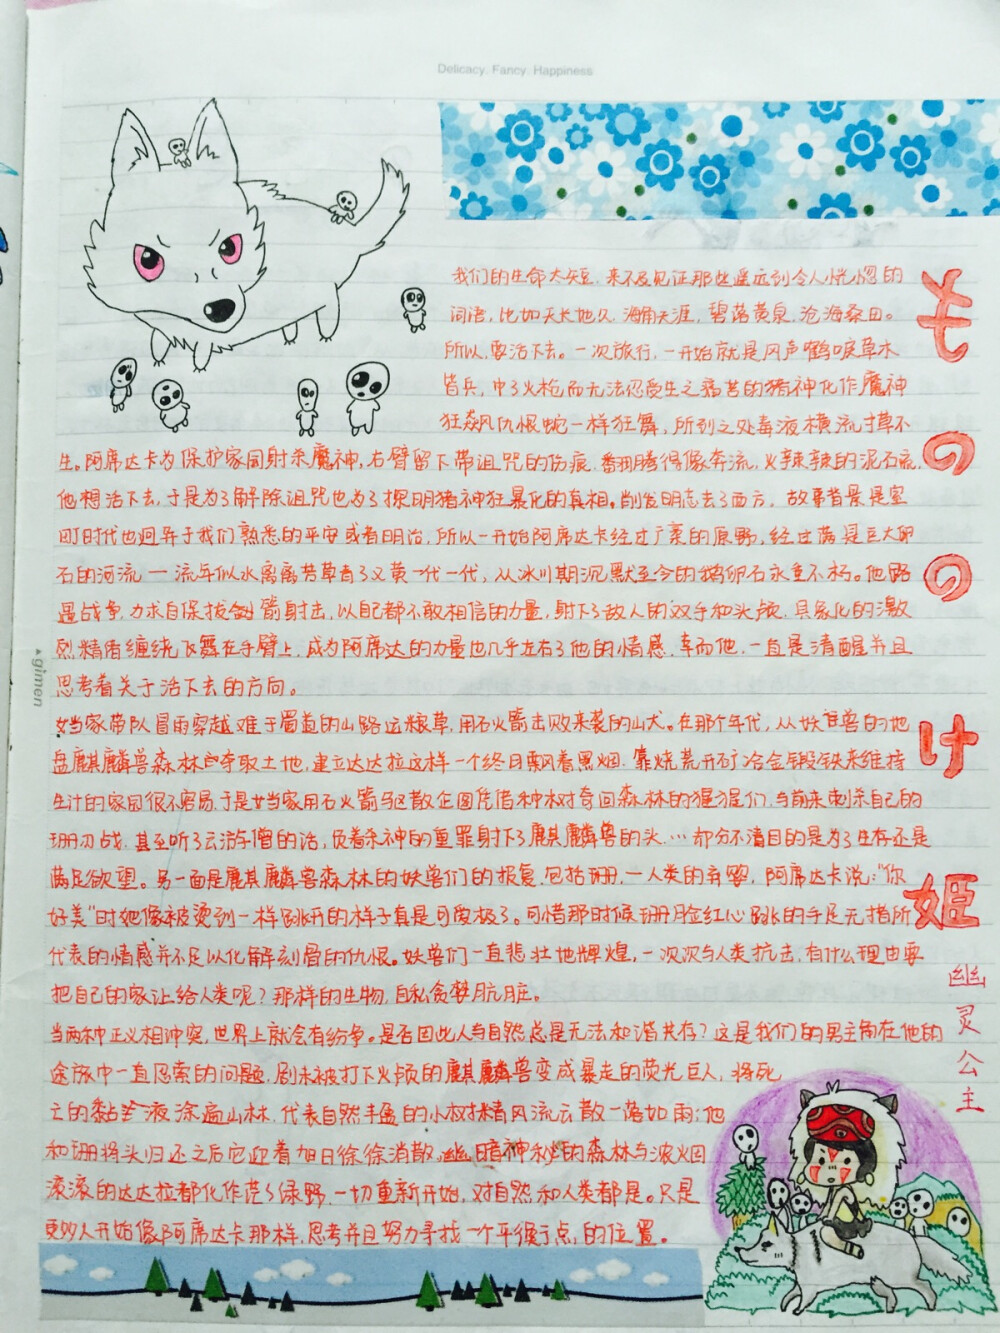 Delicacy. Fancy. Happiness
もののけ姫
幽灵公主
我们的生命太短,来不及见证那些遥远到令人恍惚的
词语,比如天长地久,海角天涯,碧落黄泉,沧海桑田。
所以,要活下去。一次旅行,一开始就是风声鹤唳草木
皆兵,中了火枪而无法忍受生之痛苦的猪神化作魔神
狂飙,仇恨蛇一样狂舞,所到之处毒液横流寸草不
生。阿席达卡为保护家园射杀魔神,右臂留下带诅咒的伤痕,翻腾得像奔流,火辣辣的泥石流,
他想活下去,于是为了解除诅咒也为了探明猪神狂暴化的真相。削发明志去了西方,故事背景是室
町时代也迥异于我们熟悉的平安或者明治,所以一开始阿席达卡经过广袤的原野,经过满是巨大卵
石的河流——流年似水离离芳草青了又黄一代一代,从冰川期沉默至今的鹅卵石永垂不朽。他路
遇战争,力求自保拔剑箭射击,以自己都不敢相信的力量,射下了敌人的双手和头颅,具象化的激
烈精缠绕飞舞在手臂上,成为阿席达的力量也几乎左右了他的情感,幸而他,一直是清醒并且
思考着关于活下去的方向。
女当家带队冒雨穿越难于蜀道的山路运粮草,用石火箭击败来袭的山犬。在那个年代,从妖兽的地
盘麒麟兽森林夺取土地,建立达达拉这样一个终日飘着黑烟,靠烧荒开矿冶金锻铁来维持
生计的家园很不容易,于是女当家用石火箭驱散企图凭借种树夺回森林的猩猩们,与前来刺杀自己的
珊刃战,甚至听了云游僧的话,负着杀神的重罪射下了麒麟兽的头…却分不清目的是为了生存还是
满足欲望。另一面是麒麟兽森林的妖兽们的报复,包括珊,一人类的弃婴,阿席达卡说:“你
好美”时她像被烫到一样跳开的样子真是可爱极了。可惜那时候珊脸红心跳的手足无措所
代表的情感并不足以化解刻骨的仇恨。妖兽们一直悲壮地辉煌,一次次与人类抗击,有什么理由要
把自己的家让给人类呢?那样的生物,自私贪婪肮脏。
当两种正义相冲突,世界上就会有纷争。是否因此人与自然总是无法和谐共存?这是我们的男主角在他的
旅途中一直思索的问题,剧末被打下头颅的麒麟兽变成暴走的荧光巨人,将死
亡的黏液涂遍山林,代表自然丰盈的小树精风流云散一落如雨;他
和珊将头归还之后它迎着旭日徐徐消散,幽暗神秘的森林与浓烟
滚滚的达达拉都化作茫茫绿野,一切重新开始,对自然和人类都是。只是
更多人开始像阿席达卡那样,思考并且努力寻找一个平衡于点,的位置。
gimen